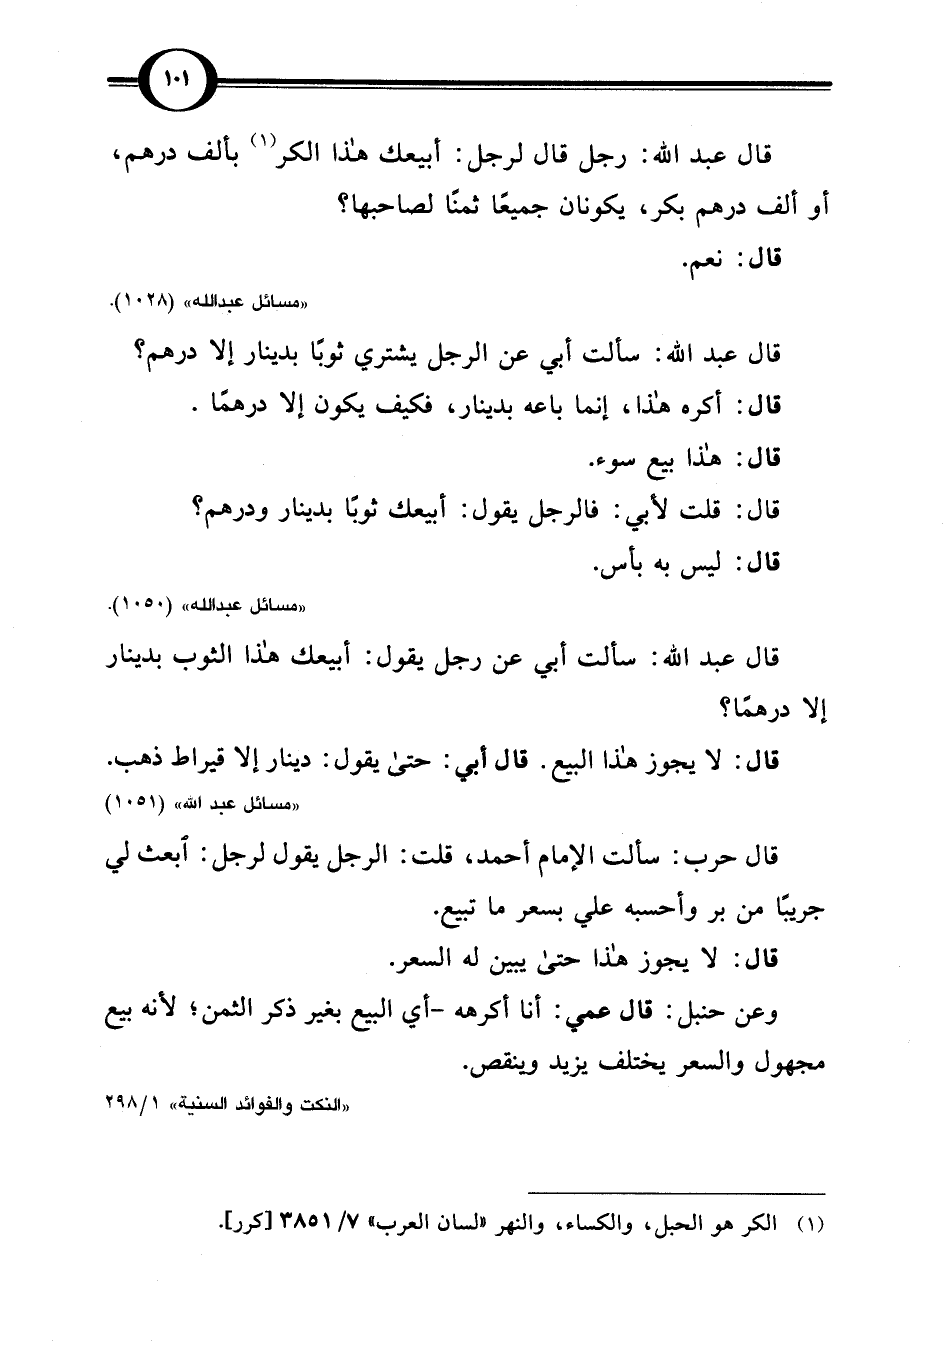 ١٠١
قال عبد الله: رجل قال لرجل: أبيعك هذا الكر(١) بألف درهم،
أو ألف درهم بكر، يكونان جميعًا ثمنًا لصاحبها؟
قال: نعم.
«مسائل عبدالله» (١٠٢٨).
قال عبد الله: سألت أبي عن الرجل يشتري ثوبًا بدينار إلا درهم؟
قال: أكره هذا، إنما باعه بدينار، فكيف يكون إلا درهمًا .
قال: هذا بيع سوء.
قال: قلت لأبي: فالرجل يقول: أبيعك ثوبًا بدينار ودرهم؟
قال: ليس به بأس.
«مسائل عبدالله» (١٠٥٠).
قال عبد الله: سألت أبي عن رجل يقول: أبيعك هذا الثوب بدينار
إلا درهمًا؟
قال: لا يجوز هذا البيع. قال أبي: حتىٰ يقول: دينار إلا قيراط ذهب.
«مسائل عبد الله» (١٠٥١)
قال حرب: سألت الإمام أحمد، قلت: الرجل يقول لرجل: ٱبعث لي
جريبًا من بر وأحسبه علي بسعر ما تبيع.
قال: لا يجوز هذا حتىٰ يبين له السعر.
وعن حنبل: قال عمي: أنا أكرهه -أي البيع بغير ذكر الثمن؛ لأنه بيع
مجهول والسعر يختلف يزيد وينقص.
«النكت والفوائد السنية» ٢٩٨/١
(١) الكر هو الحبل، والكساء، والنهر «لسان العرب» ٣٨٥١/٧ [كرر].